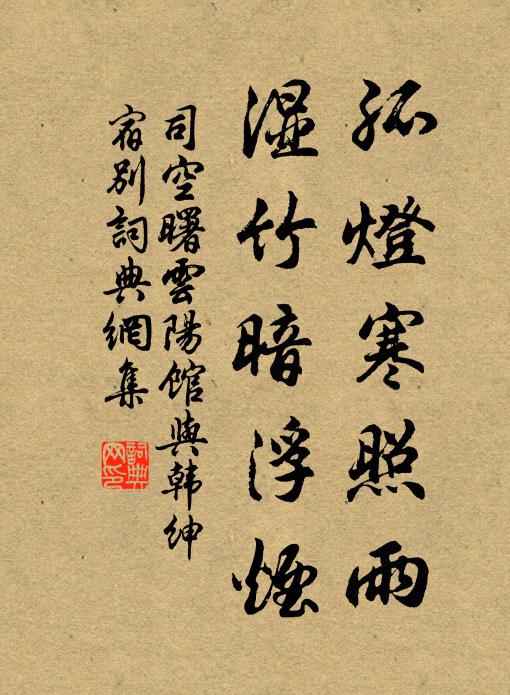 孤燈寒照雨
湿竹暗浮煙
司空曙雲陽館與韩紳
宿别詞典網集
詞典网印